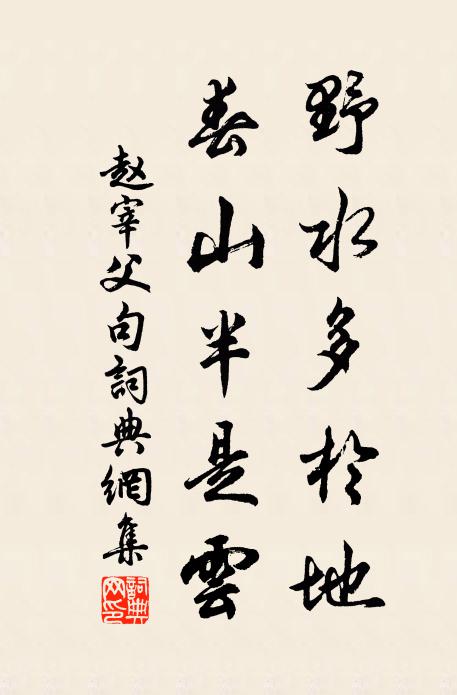 野水多於地
春山半是雲
赵宰父句詞典網集
詞典網印